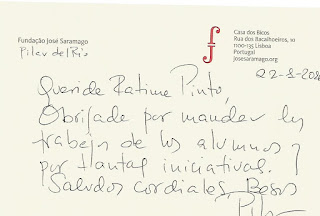 Fundação José Saramago
Pilar del Río
Casa dos Bicos
Rua dos Bacalhoeiros, 10
1100-135 Lisboa
Portugal
josesaramago.org
22-8-20
Querida Fatima Pinto,
Obrigada por mandar los
trabajos de los alumnos y
por tantas iniciativas.
Saludos cordiales, Besos
Pilar